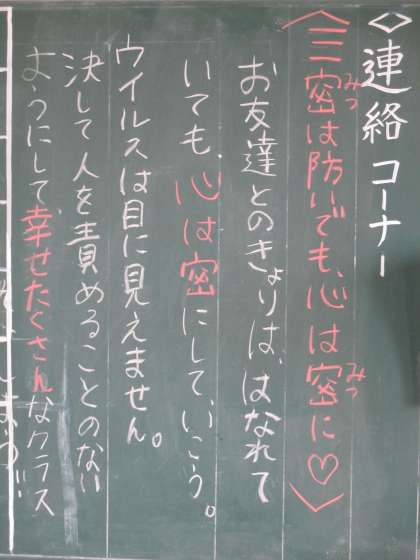 ◇連絡コーナー
〈三密は防いでも、心は密に♡〉
みつ
みつ
お友達とのきょりは、はなれて
いても、心は密にして、いこう。
ウイルスは目に見えません。
決して人を責めることのない
ようにして幸せたくさんなクラス